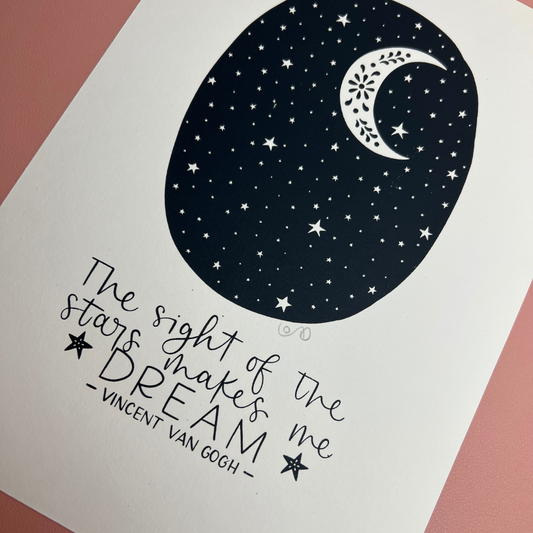 The sight of the
stars makes me
DREAM
- VINCENT VAN GOGH -